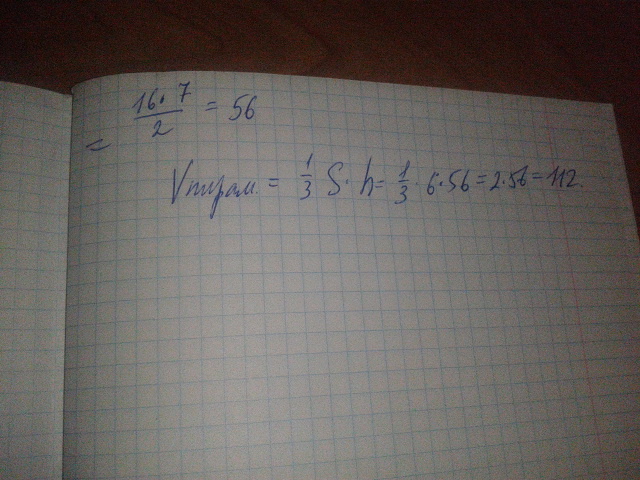 = 16·7/2 = 56
Vпирам. = 1/3 S·h = 1/3 · 6·56 = 2·56 = 112.